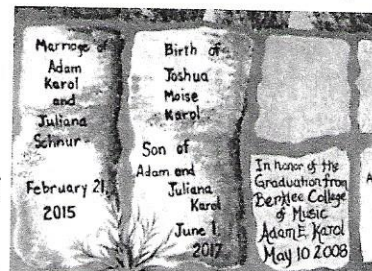 Marriage of
Adam
Karol
and
Juliana
Schnur
February 21,
2015
Birth of
Joshua
Moise
Karol
Son of
Adam and
Juliana
Karol
June 1
2017
In honor of the
Graduation from
Berklee College
of Music
Adam E. Karol
May 10 2008
A